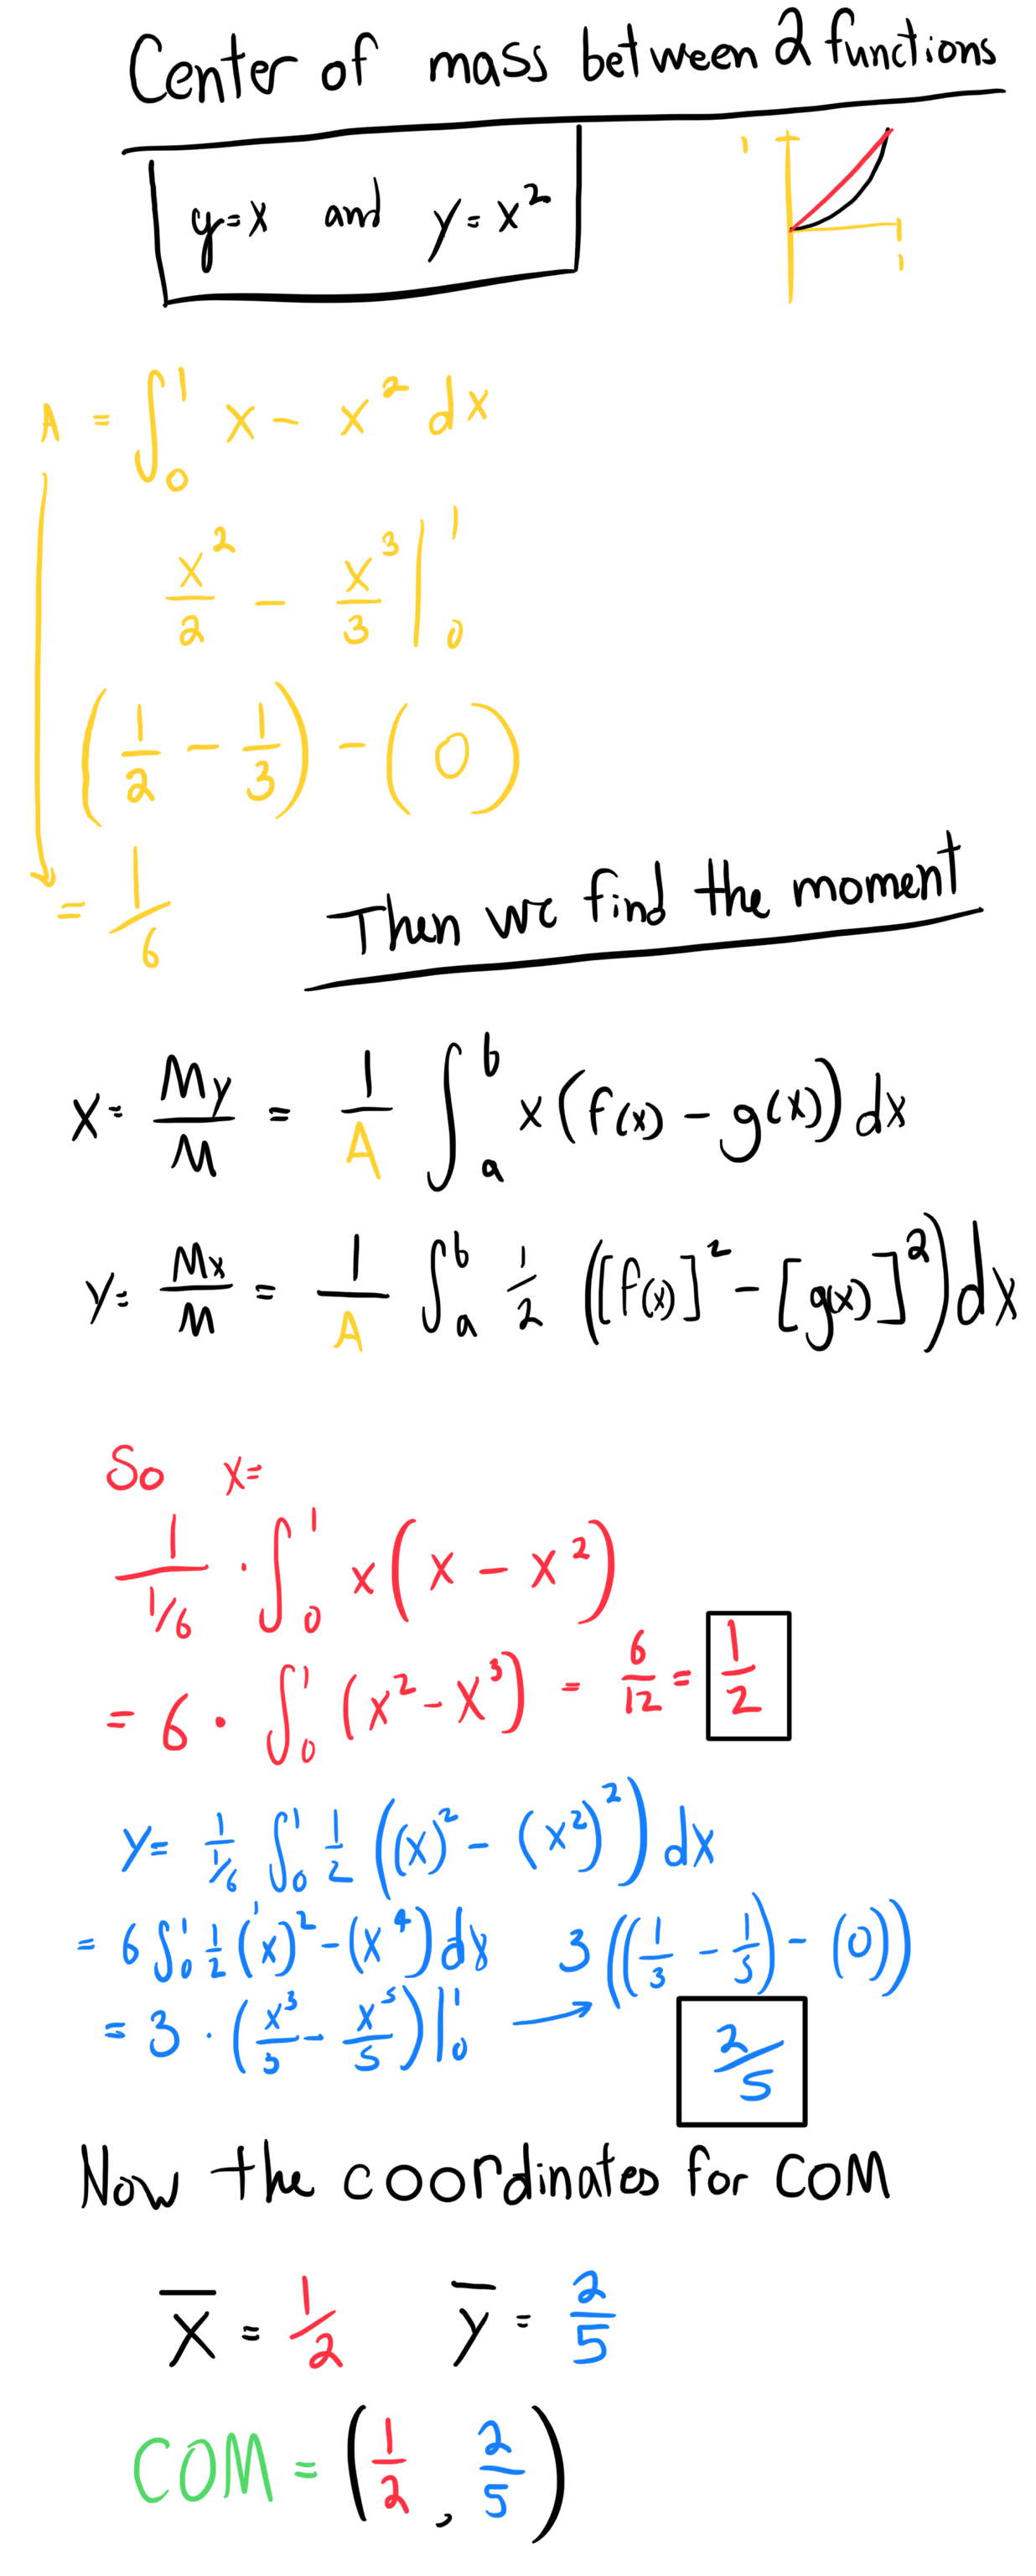 Center of mass between 2 functions
y=x and y=x²
1
1
A = ∫₀¹ x - x² dx
x²/2 - x³/3 |₀¹
(1/2 - 1/3) - (0)
= 1/6
Then we find the moment
x = My/M = 1/A ∫ₐᵇ x(f(x) - g(x)) dx
y = Mx/M = 1/A ∫ₐᵇ 1/2 ([f(x)]² - [g(x)]²) dx
So x=
1/(1/6) · ∫₀¹ x(x - x²)
= 6 · ∫₀¹ (x² - x³) = 6/12 = 1/2
y = 1/(1/6) ∫₀¹ 1/2 ((x)² - (x²)²) dx
= 6 ∫₀¹ 1/2 (x)² - (x⁴) dx
= 3 · (x³/3 - x⁵/5) |₀¹ → 3((1/3 - 1/5) - (0))
2/5
Now the coordinates for COM
x̄ = 1/2 ȳ = 2/5
COM = (1/2, 2/5)